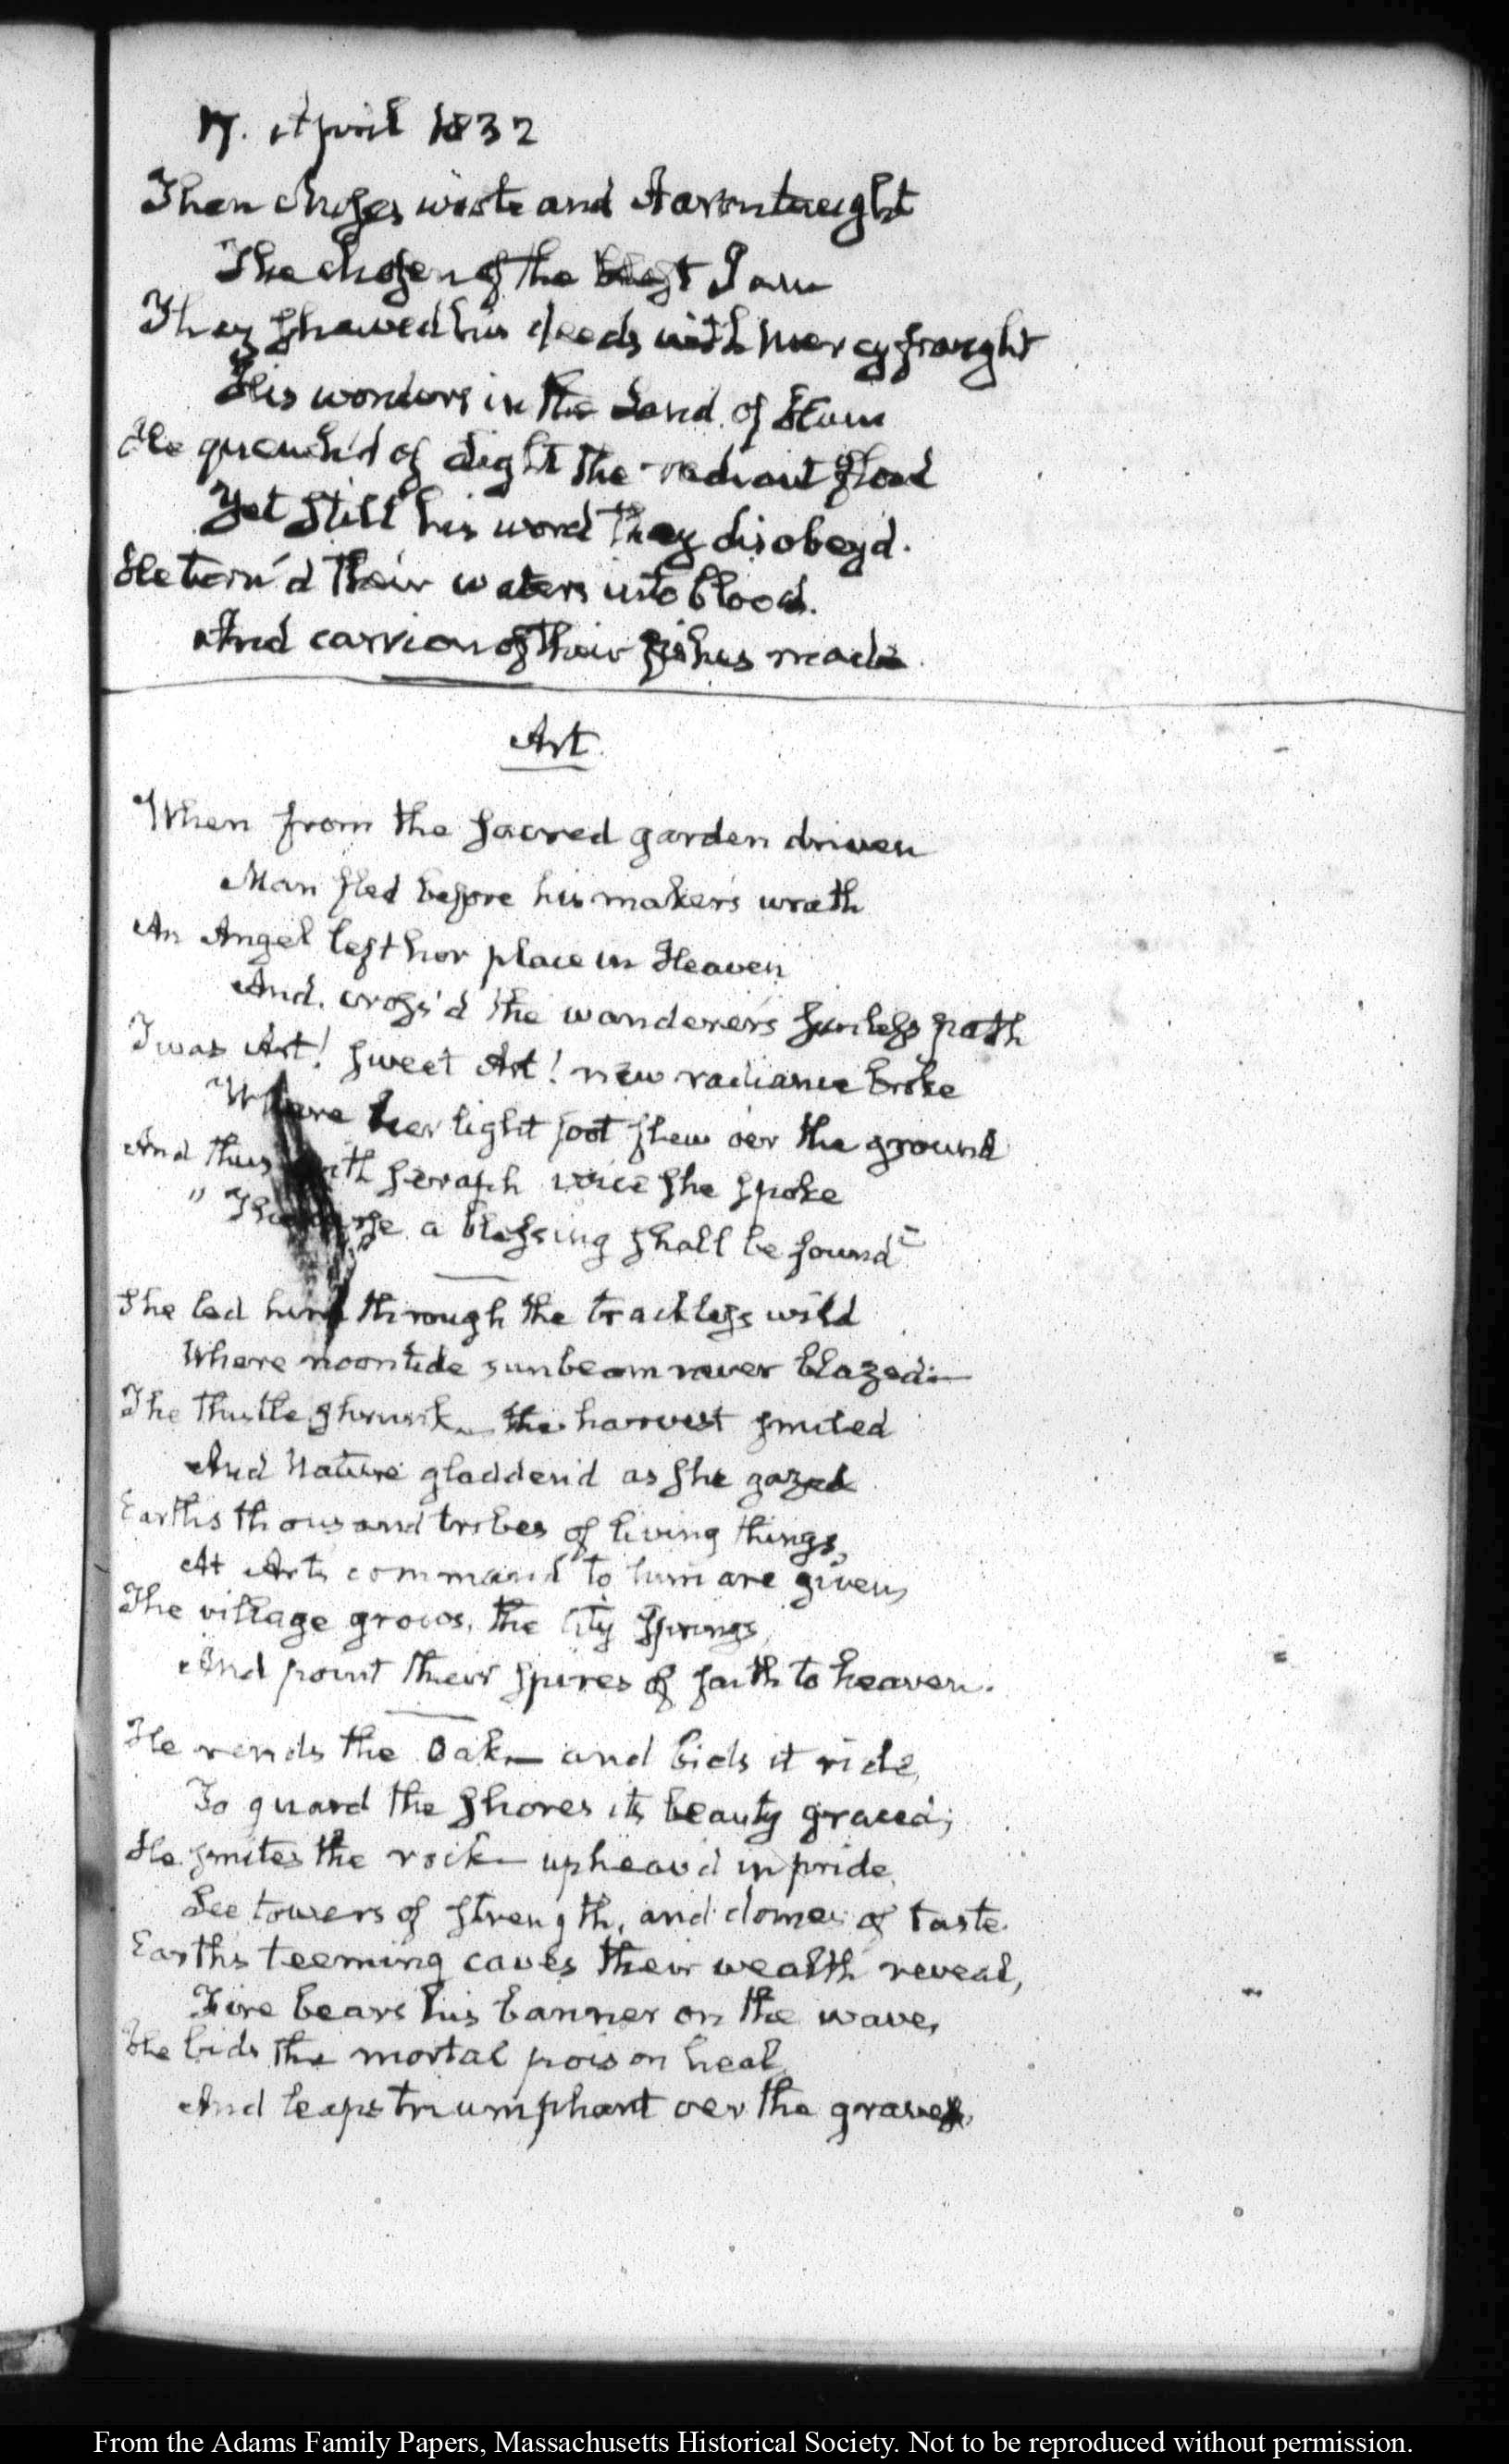 17. April 1832
Then Moses wrote and Aaron taught
The chosen of the blest I am
They shewed his deeds with mercy fraught
His wonders in the Land of Ham
He quench'd of Light the radiant flood
Yet still his word they disobey'd.
He turn'd their waters into blood.
And carrion of their fishes made.
Art.
When from the sacred garden driven
Man fled before his maker's wrath
An Angel left her place in Heaven
And cross'd the wanderer's sunless path
Twas Art! sweet Art! new radiance broke
Where her light foot flew o'er the ground
And thus with seraph voice she spoke
"The curse a blessing shall be found"
She led him through the trackless wild
Where noontide sunbeam never blazed:—
The thistle shrunk – the harvest smiled
And Nature gladden'd as she gazed
Earth's thousand tribes of living things,
At Art's command to him are given,
The village grows, the City Springs,
And point their spires of faith to heaven.
He rends the Oak – and bids it ride,
To guard the shores its beauty graced;
He smites the rock – upheav'd in pride,
See towers of strength, and domes of taste.
Earth's teeming caves their wealth reveal,
Fire bears his banner on the wave,
He bids the mortal poison heal,
And leaps triumphant oer the grave.
From the Adams Family Papers, Massachusetts Historical Society. Not to be reproduced without permission.